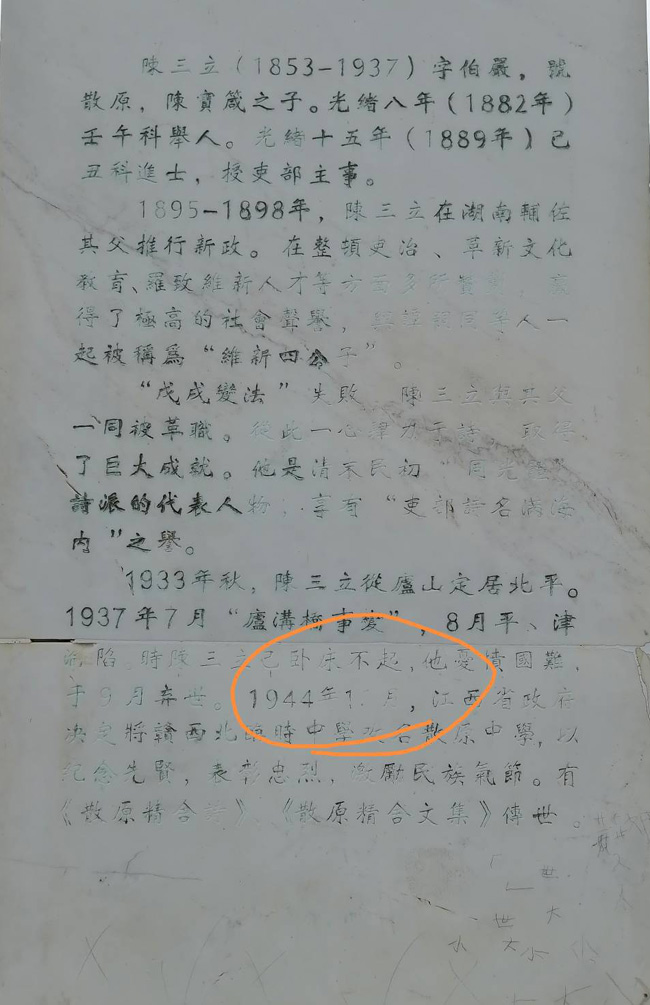 陳三立（1853-1937）字伯嚴，號
散原，陳寶箴之子。光緒八年（1882年）
壬午科舉人。光緒十五年（1889年）己
丑科進士，授吏部主事。
1895-1898年，陳三立在湖南輔佐
其父推行新政。在整頓吏治、革新文化
教育、羅致維新人才等方面多所
得了極高的社會聲譽，人一
起被稱爲“維新四公子”。
“戊戌變法”失敗 陳三立與其父
一同被革職。從此一心 于詩
了巨大成就。他是清末民初“同光體”
詩派的代表人物，享有“吏部詩名滿海
內”之譽。
1933年秋，陳三立從廬山定居北平。
1937年7月“廬溝橋事變”，8月平、津
淪陷。時陳三立已卧床不起，他憂憤國難，
于9月弃世。1944年1 月，江西省政府
决定將贛西北臨時中學改名散原中學，以
紀念先賢，表彰忠烈，激勵民族氣節。有
《散原精舍詩》、《散原精舍文集》傳世。
世
大
世
大